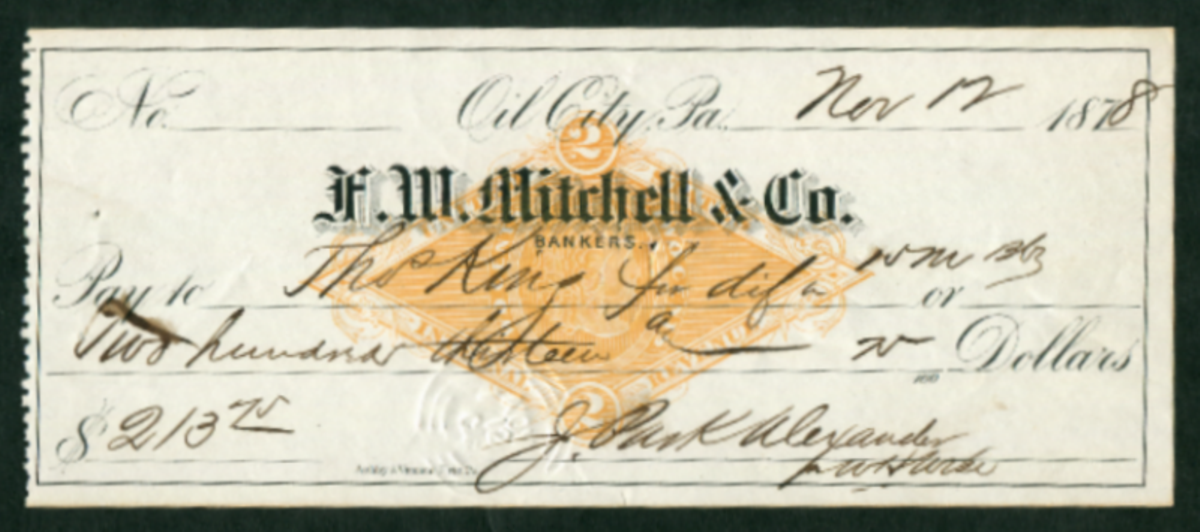 No. Oil City, Pa. Nov 12 1878
2
F. W. Mitchell & Co.
BANKERS.
Pay to Thos King for dif on 10 M Bbs or
Two hundred thirteen & 75 Dollars
100
$ 213 75 J. Park Alexander
2